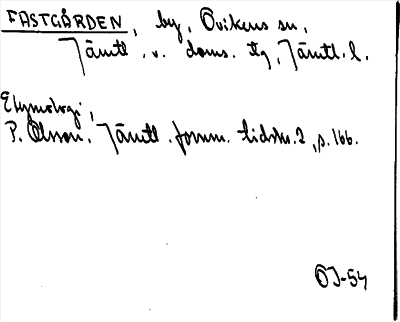 FASTGÅRDEN, by, Ovikens sn,
Jämtl. v. doms. tlg, Jämtl. l.
Etymologi,
P. Olsson, Jämtl. fornm. tidskr. 2, s. 166.
OJ-54